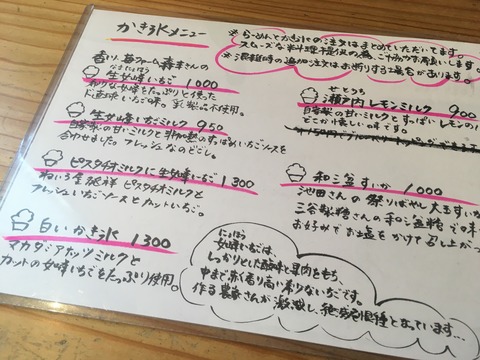 かき氷メニュー
※らーめんとかき氷の注文はまとめていただいてます。
スムーズな料理提供の為、ご協力お願いします。
※混雑時の追加注文はお断りする場合があります。
香川、苺ファーム森本さんの
なにょほう
生女峰いちご 1,000
女峰をたっぷりと使った
ド直球いちご味。乳製品不使用。
生女峰いちごミルク 950
自家製の甘いミルクと非加熱のすっぱいいちごソースを
合わせました。フレッシュなのどごし。
ピスタチオミルクに生女峰いちご 1300
ねいろ堂焼祥 ピスタチオミルクと
フレッシュいちごソースとカットいちご。
白いかき氷 1300
マカダミアナッツミルクと
カットの女峰いちごをたっぷり使用。
せとうち
瀬戸内レモンミルク 900
自家製の甘いミルクとすっぱいレモンの
どこか懐しい味です。
和三盆すいか 1000
池田さんの祭りばやし大玉すいか
三谷製糖さんの和三盆糖で味
お好みでお塩をかけて召し上が
にょほう
女峰いちごは、
しっかりとした酸味と果肉をもち、
中まで赤く香り高い希少ないちごです。
作る農家さんが激減し、絶滅危惧種となっています…